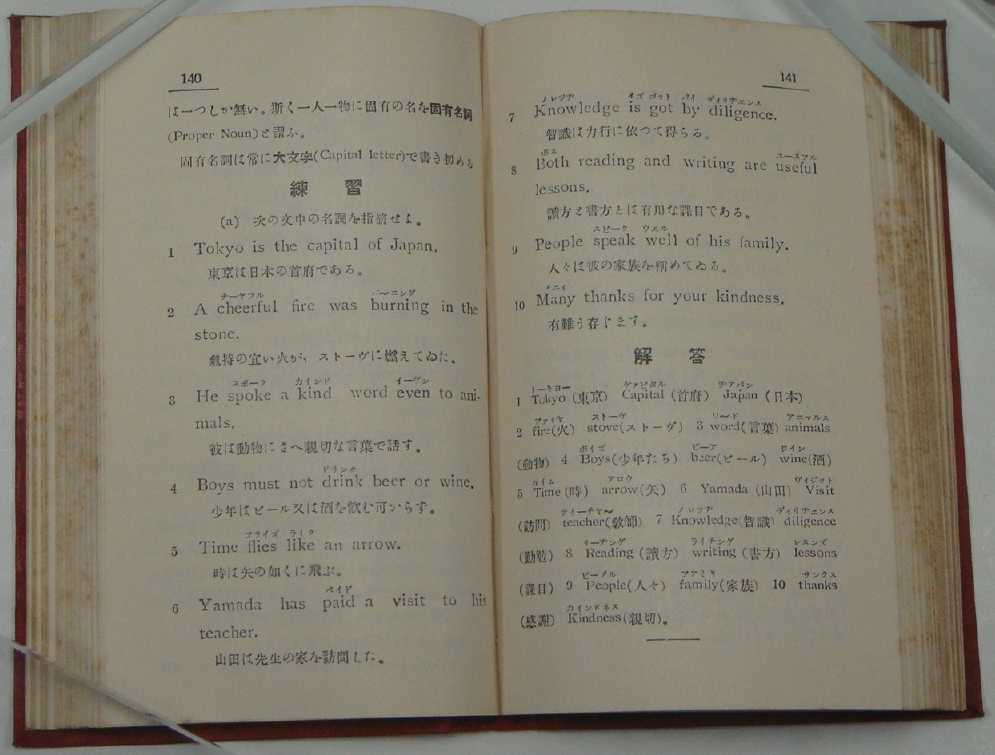 140
は一つしか無い。斯く一人一物に固有の名を固有名詞
(Proper Noun)と謂ふ。
固有名詞は常に大文字(Capital letter)で書き初める
練 習
(a) 次の文中の名詞を指摘せよ。
1 Tokyo is the capital of Japan.
東京は日本の首府である。
チーヤフル バーニング
2 A cheerful fire was burning in the
stone.
氣持の宜い火が、ストーヴに燃えてゐた。
スポーク カインド イーヴン
3 He spoke a kind word even to ani-
mals.
彼は動物にさへ親切な言葉で話す。
ドリンク
4 Boys must not drink beer or wine.
少年はビール又は酒を飲む可からず。
フライズ ライク
5 Time flies like an arrow.
時は矢の如くに飛ぶ。
ペイド
6 Yamada has paid a visit to his
teacher.
山田は先生の家を訪問した。
141
ノレツヂ イズ ゴット バイ ディリヂエンス
7 Knowledge is got by diligence.
智識は力行に依つて得らる。
ボス ユースフル
8 Both reading and writing are useful
lessons.
讀方と書方とは有用な課目である。
スピーク ウエル
9 People speak well of his family.
人々は彼の家族を褒めてゐる。
メニイ
10 Many thanks for your kindness.
有難う存じます。
解 答
トーキヨー ケァピタル ヂァパン
1 Tokyo (東京) Capital (首府) Japan (日本)
ファイヤ ストーヴ ワード アニマルス
2 fire(火) stove(ストーヴ) 3 word(言葉) animals
ボイズ ビーア ワイン
(動物) 4 Boys(少年たち) beer(ビール) wine(酒)
タイム アロウ ヴィジット
5 Time(時) arrow(矢) 6 Yamada (山田) Visit
ティーチヤー ノレツヂ ディリヂエンス
(訪問) teacher(敎師) 7 Knowledge(智識) diligence
リーデング ライチング レスンズ
(勤勉) 8 Reading (讀方) writing (書方) lessons
ピープル ファミリ サンクス
(課目) 9 People(人々) family(家族) 10 thanks
カインドネス
(感謝) Kindness(親切)。